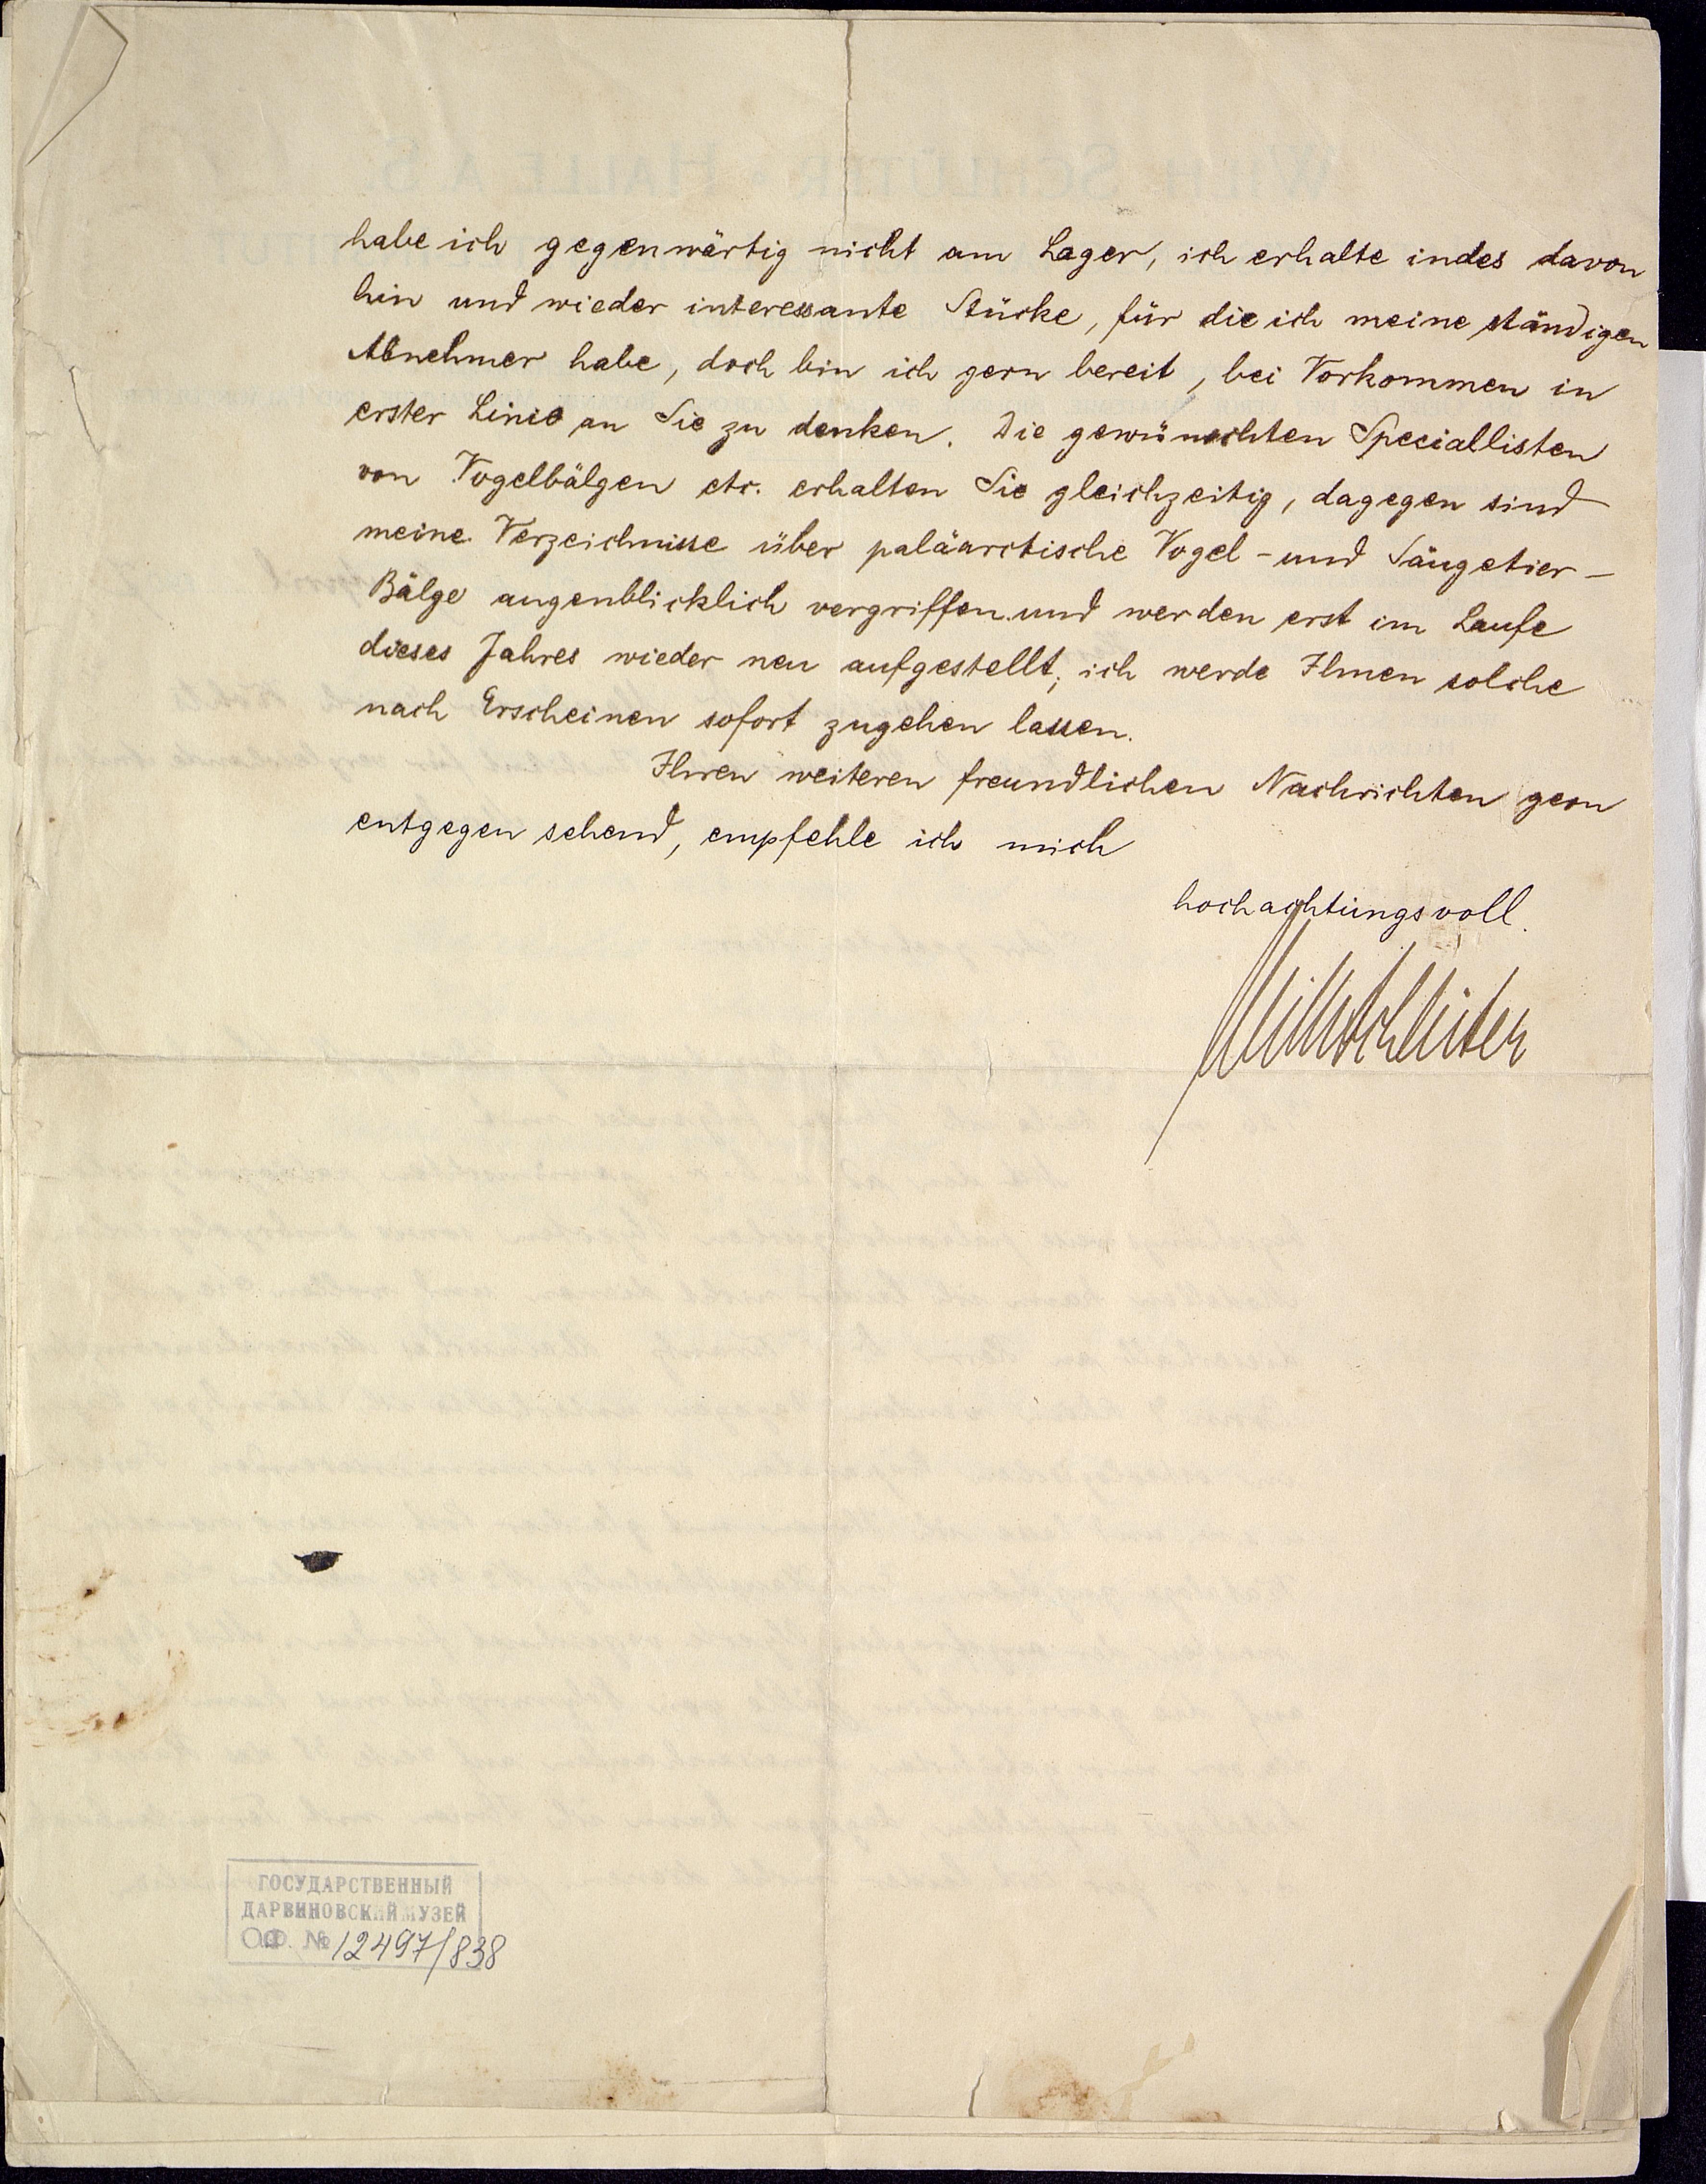 habe ich gegenwärtig nicht am Lager, ich erhalte indes davon
hin und wieder interessante Stücke, für die ich meine ständigen
Abnehmer habe, doch bin ich gern bereit, bei Vorkommen in
erster Linie an Sie zu denken. Die gewünschten Speciallisten
von Vogelbälgen etc. erhalten Sie gleichzeitig, dagegen sind
meine Verzeichnisse über paläarctische Vogel- und Säugetier-
Bälge augenblicklich vergriffen und werden erst im Laufe
dieses Jahres wieder neu aufgestellt; ich werde Ihnen solche
nach Erscheinen sofort zugehen lassen.
Ihren weiteren freundlichen Nachrichten gern
entgegen sehend, empfehle ich mich
hochachtungsvoll.
Wilh Schlüter
ГОСУДАРСТВЕННЫЙ
ДАРВИНОВСКИЙ МУЗЕЙ
ОФ. № 12497/838